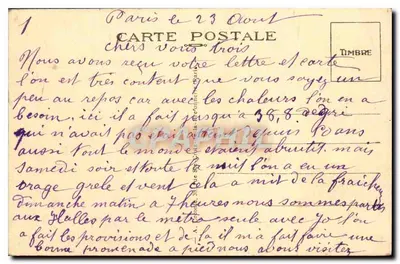 1
Paris le 23 Aout
CARTE POSTALE
chers vous trois
TIMBRE
Nous avons reçu votre lettre et carte
l'on est très content que vous soyez un
peu au repos car avec les chaleurs l'on en a
besoin, ici il a fait jusqu'a 38,8 degri
qui n'avait pas depuis ans
aussi tout le monde etaient abrutit. mais
samedi soir et toute la nuit l'on a eu un
orage grele et vent cela a mit de la fraicheur
dimanche matin a 7 heures nous sommes partis
aux Halles par le métro seule avec Jo l'on
a fait les provisions et de la il m'a fait faire une
bonne promenade a pied nous avons visitez